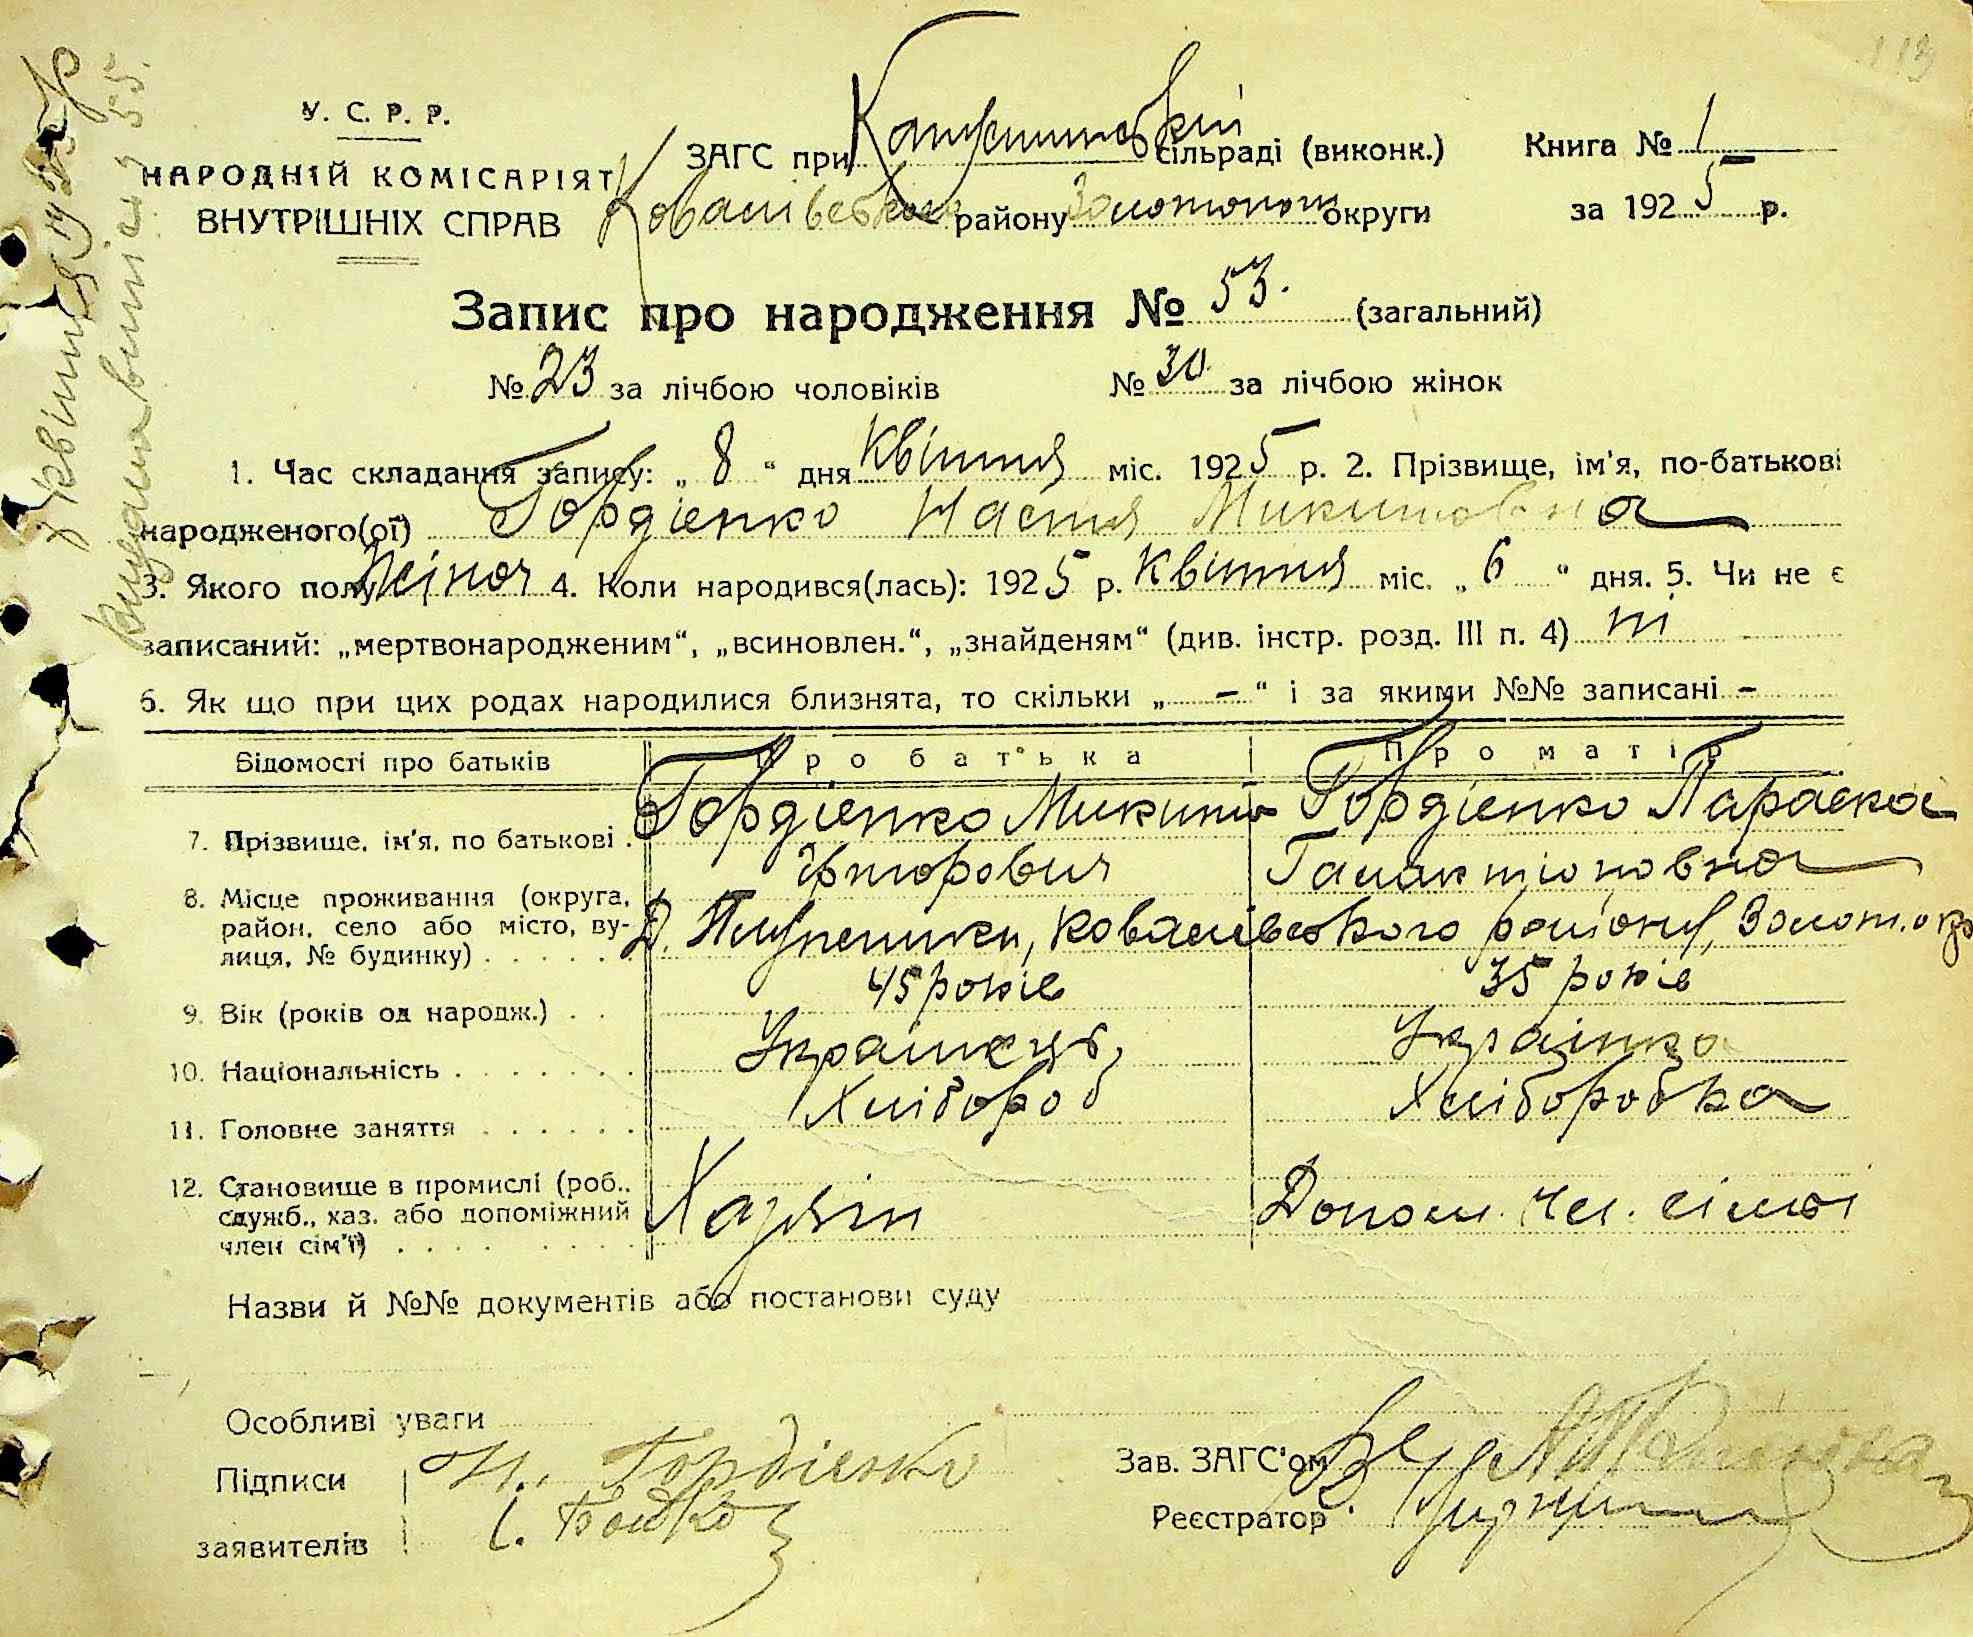 113
У. С. Р. Р.
НАРОДНІЙ КОМІСАРІЯТ
ВНУТРІШНІХ СПРАВ
ЗАГС при сільраді (виконк.)
Ковалівського району Золотоном округи
Книга № 1
за 1925 р.
Запис про народження № 53. (загальний)
№ 23 за лічбою чоловіків № 30 за лічбою жінок
1. Час складання запису: „ 8 “ дня Квітня міс. 1925 р. 2. Прізвище, ім'я, по-батькові
народженого(ої) Гордієнко Настя Микитовна
3. Якого полу жіноч 4. Коли народився(лась): 1925 р. Квітня міс. „ 6 “ дня. 5. Чи не є
записаний: „мертвонародженим“, „всиновлен.“, „знайденям“ (див. інстр. розд. III п. 4) ні
6. Як що при цих родах народилися близнята, то скільки „ – “ і за якими №№ записані –
Відомості про батьків Про батька Про матір
7. Прізвище, ім'я, по батькові . Гордієнко Микита Гордієнко Параска
Галактіоновна
8. Місце проживання (округа,
район, село або місто, ву-
лиця, № будинку) . . . . . Ковалівського району, Золот. окр
9. Вік (років од народж.) . . 45 років 35 років
10. Національність . . . . . . . Українець, Українка
11. Головне заняття . . . . . . Хлібороб Хліборобка
12. Становище в промислі (роб.,
служб., хаз. або допоміжний
член сім'ї) . . . . . . . . Хазяін Допом. чл. сімьі
Назви й №№ документів або постанови суду
Особливі уваги
Підписи
заявителів
Н. Гордієнко
Зав. ЗАГС'ом
Реєстратор